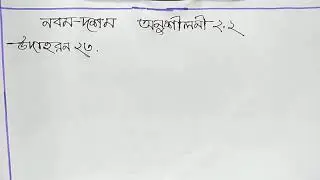 নবম-দশম অনুশীলনী ২.২
উদাহরন ২৩.